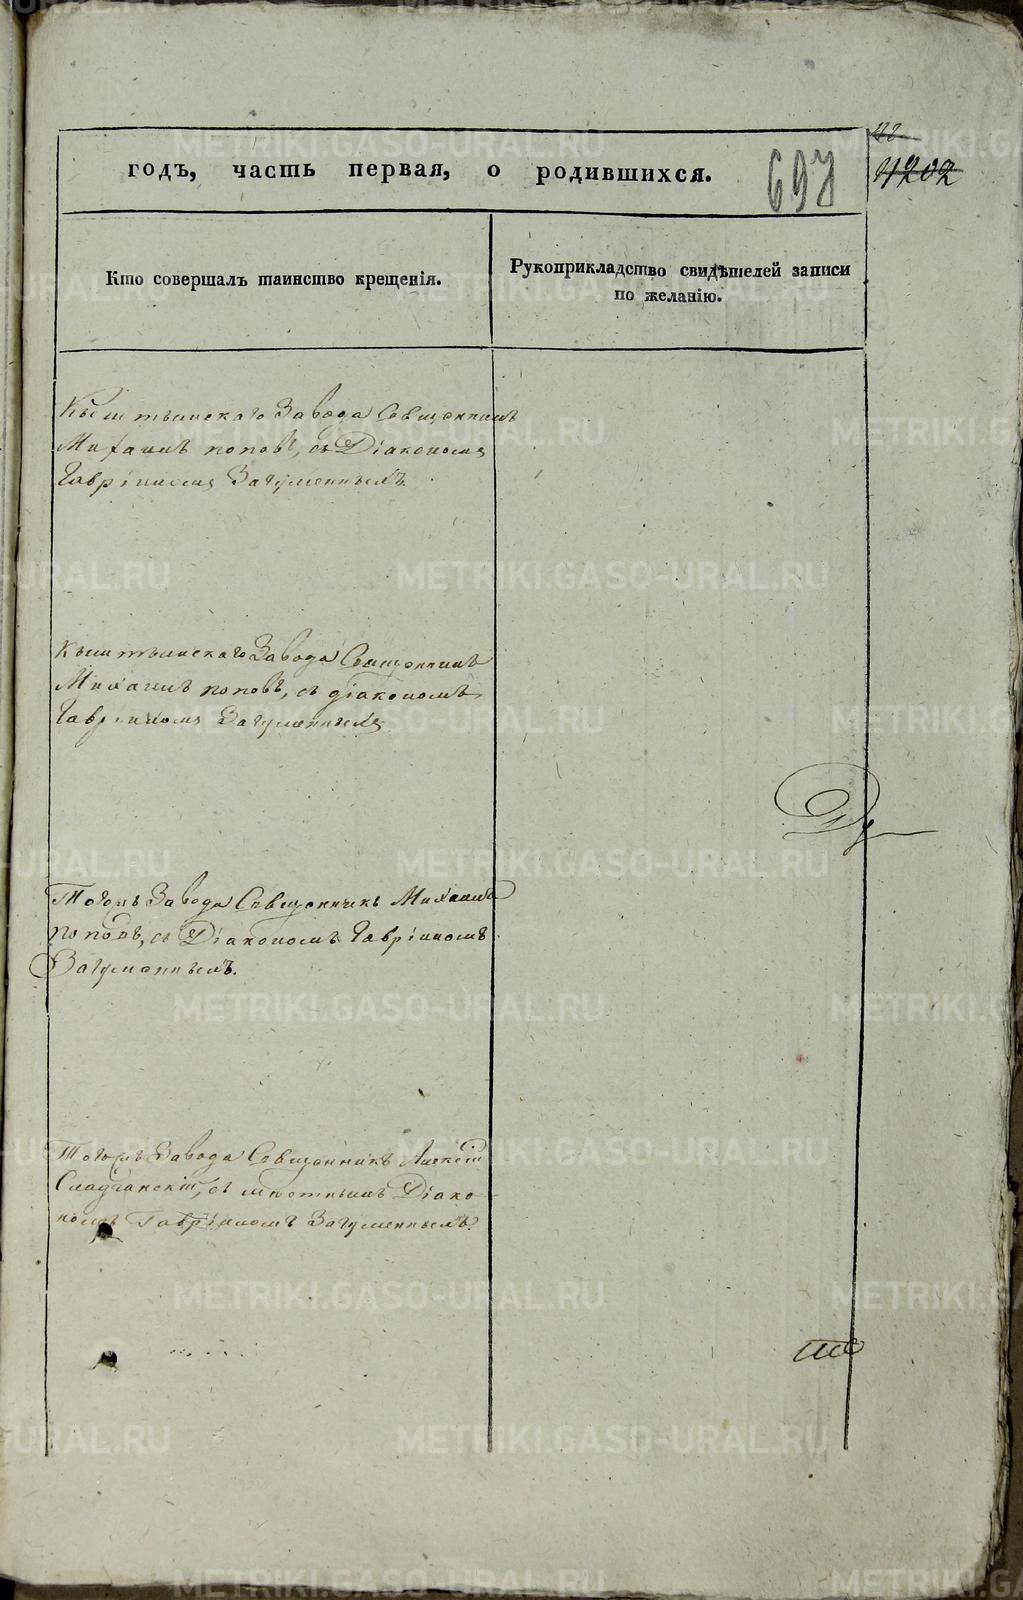 годъ, часть первая, о родившихся.
697
4202
Кто совершалъ таинство крещенія.
Рукоприкладство свидѣтелей записи
по желанію.
Кыштымскаго Завода Священникъ
Михаилъ Поповъ, съ Діакономъ
Гавріиломъ Загуменнымъ.
Кыштымскаго Завода Священникъ
Михаилъ Поповъ, съ діакономъ
Гавріиломъ Загуменнымъ
Тогожъ Завода Священникъ Михаилъ
Поповъ, съ Діакономъ Гавріиломъ
Загуменнымъ.
Ду
Тогожъ Завода Священникъ Алексій
съ мѣстнымъ Діако-
номъ Гавріиломъ Загуменнымъ.
METRIKI.GASO-URAL.RU